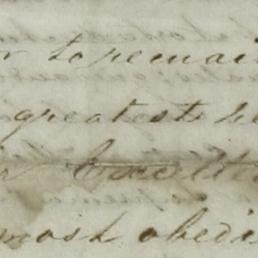 to remai
greatest
Excelle
most obedi